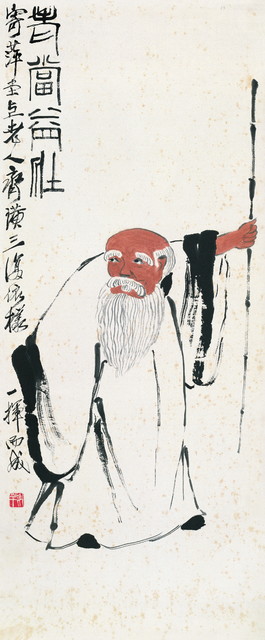 老當益壯
寄萍堂上老人齊璜三復依樣
一揮而成